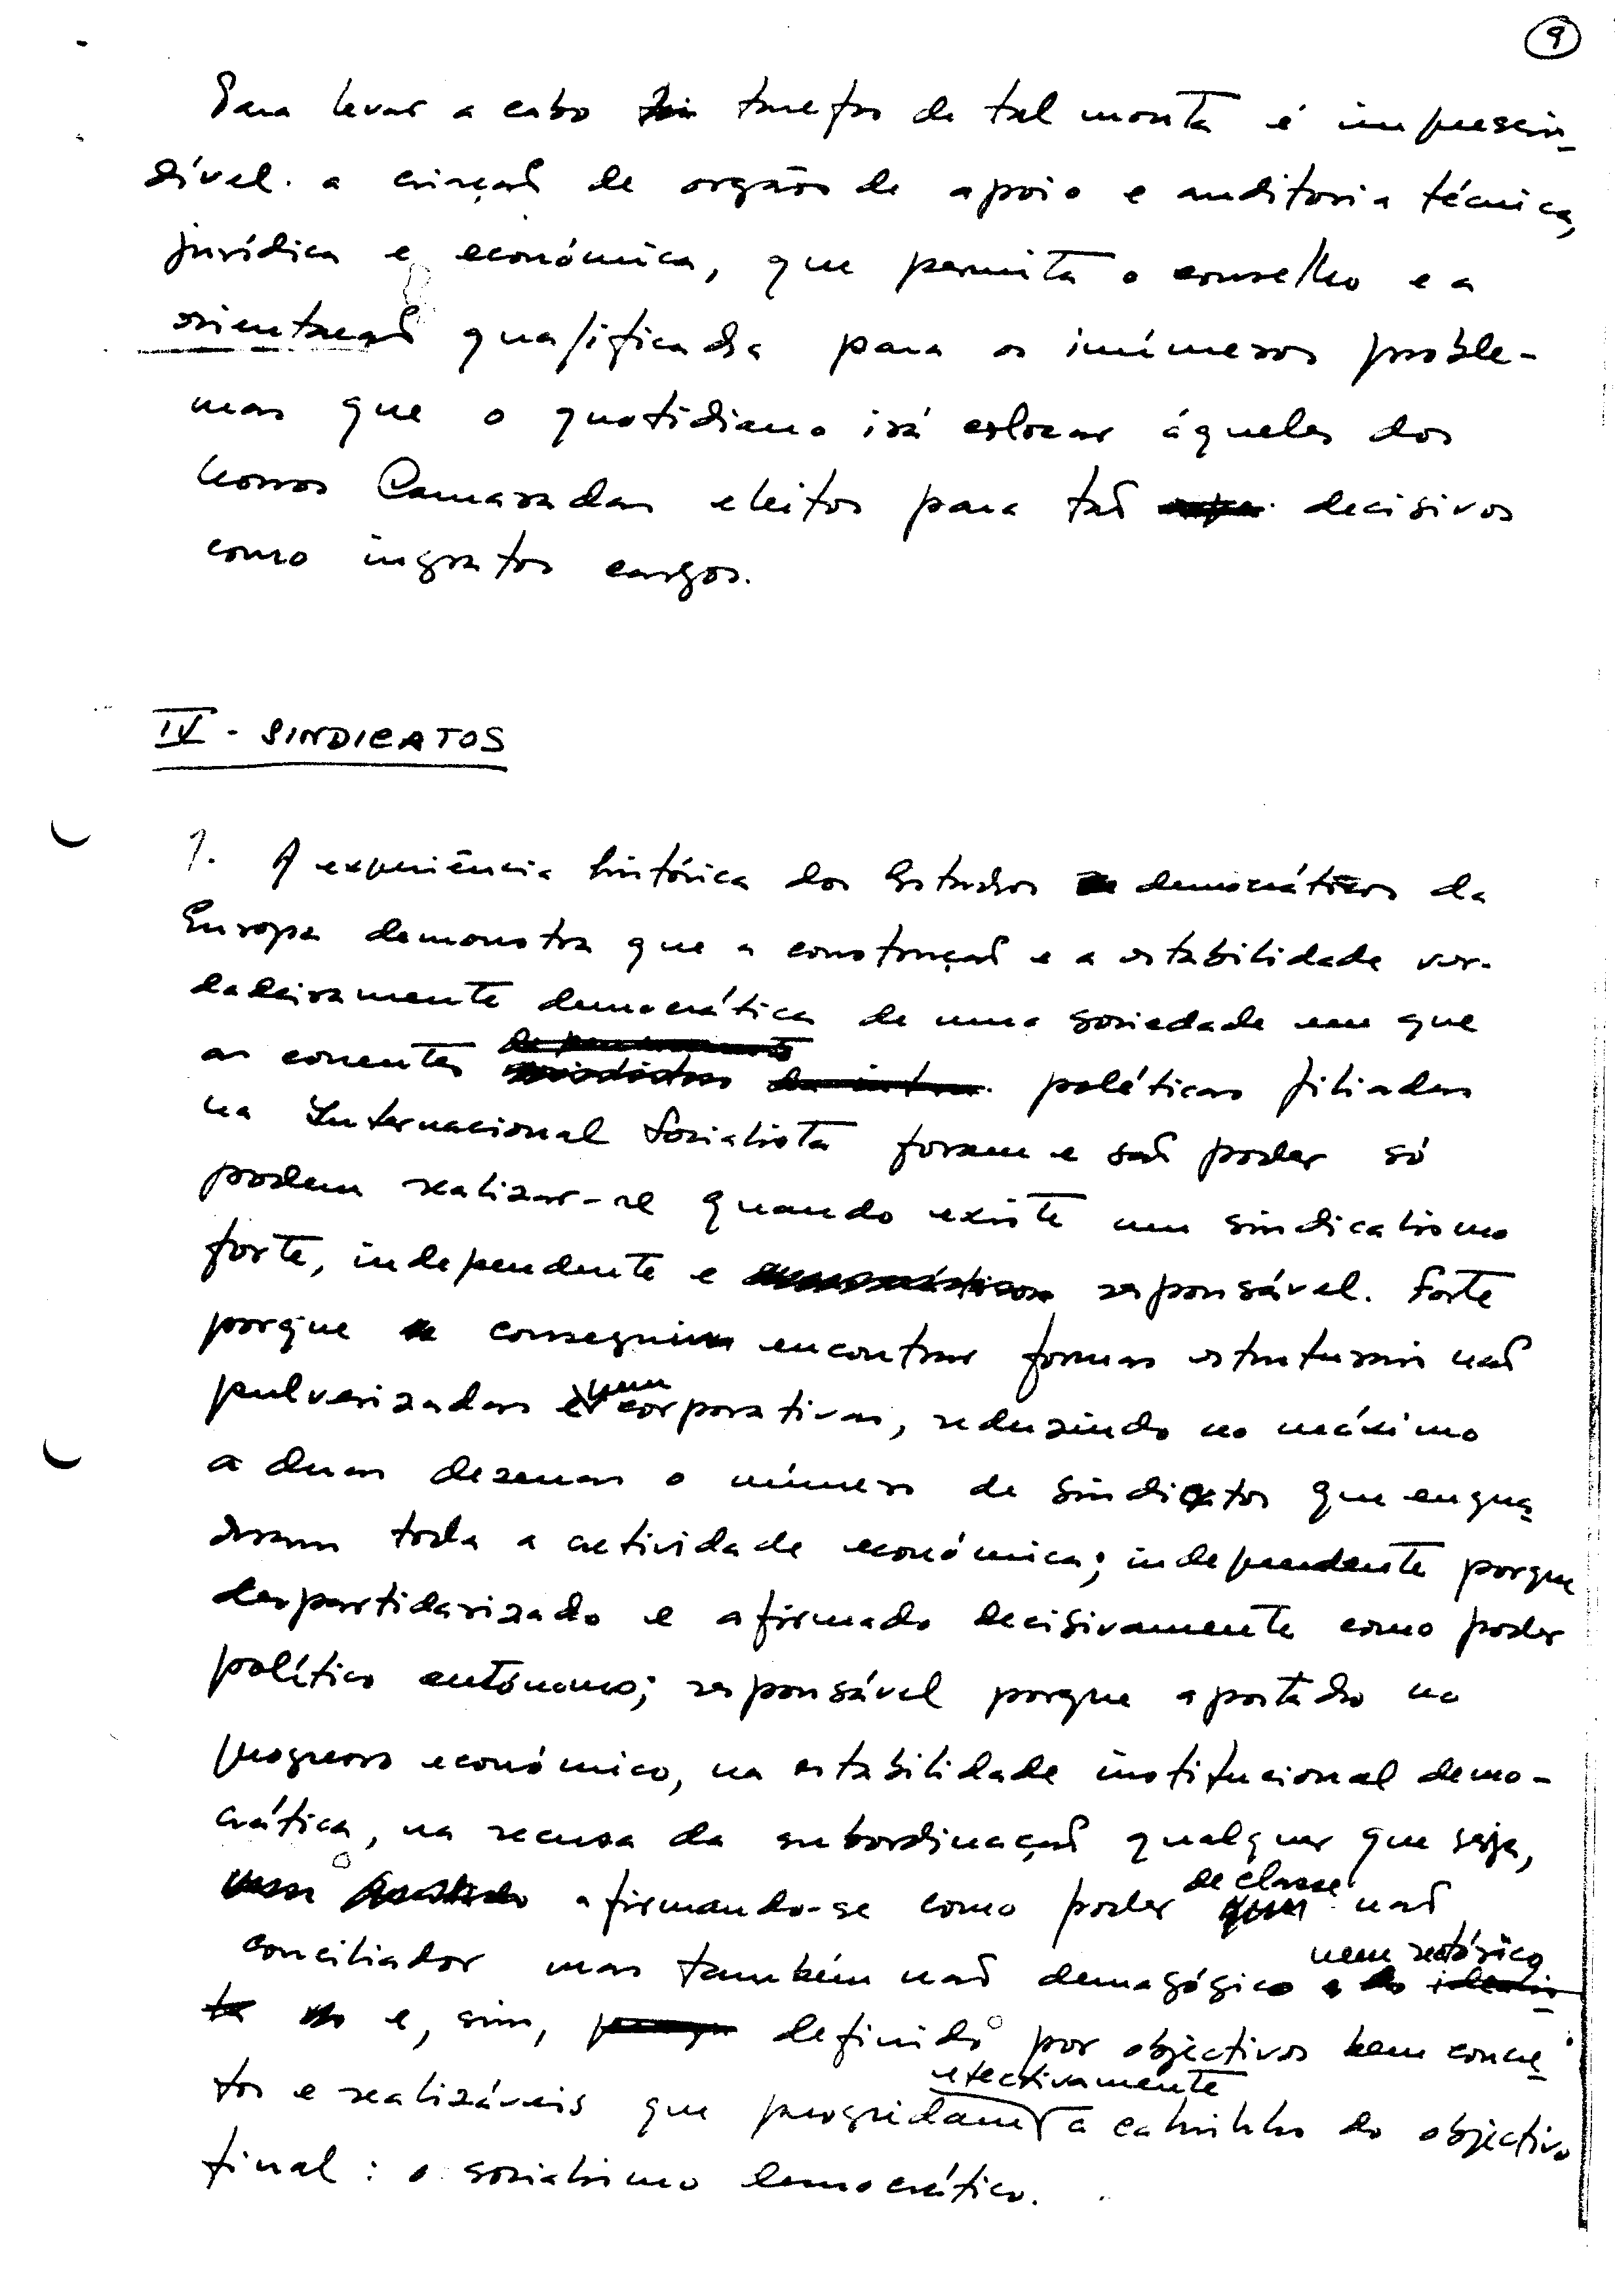 9
Para levar a cabo tarefas de tal monta é imprescin-
dível a criação de orgãos de apoio e auditoria técnica,
jurídica e económica, que permita o conselho e a
orientação qualificada para os inúmeros proble-
mas que o quotidiano irá colocar áqueles dos
nossos Camaradas eleitos para tão decisivos
como ingratos cargos.
IV - SINDICATOS
1. A experiência histórica dos Estados democráticos da
Europa demonstra que a construção e a estabilidade ver-
dadeiramente democrática de uma sociedade em que
as correntes políticas filiadas
na Internacional Socialista foram e são poder só
podem realizar-se quando existe um sindicalismo
forte, independente e responsável. Forte
porque conseguiu encontrar formas estruturais não
pulverizadas nem corporativas, reduzindo no máximo
a duas dezenas o número de sindicatos que enqua-
dram toda a actividade económica; independente porque
despartidarizado e afirmado decisivamente como poder
político autónomo; responsável porque apostado no
progresso económico, na estabilidade institucional demo-
crática, na recusa da subordinação qualquer que seja,
afirmando-se como poder de classe não
conciliador mas também não demagógico nem retórico
e, sim, definido por objectivos bem concre-
tos e realizáveis que progridam efectivamente a caminho do objectivo
final: o socialismo democrático.